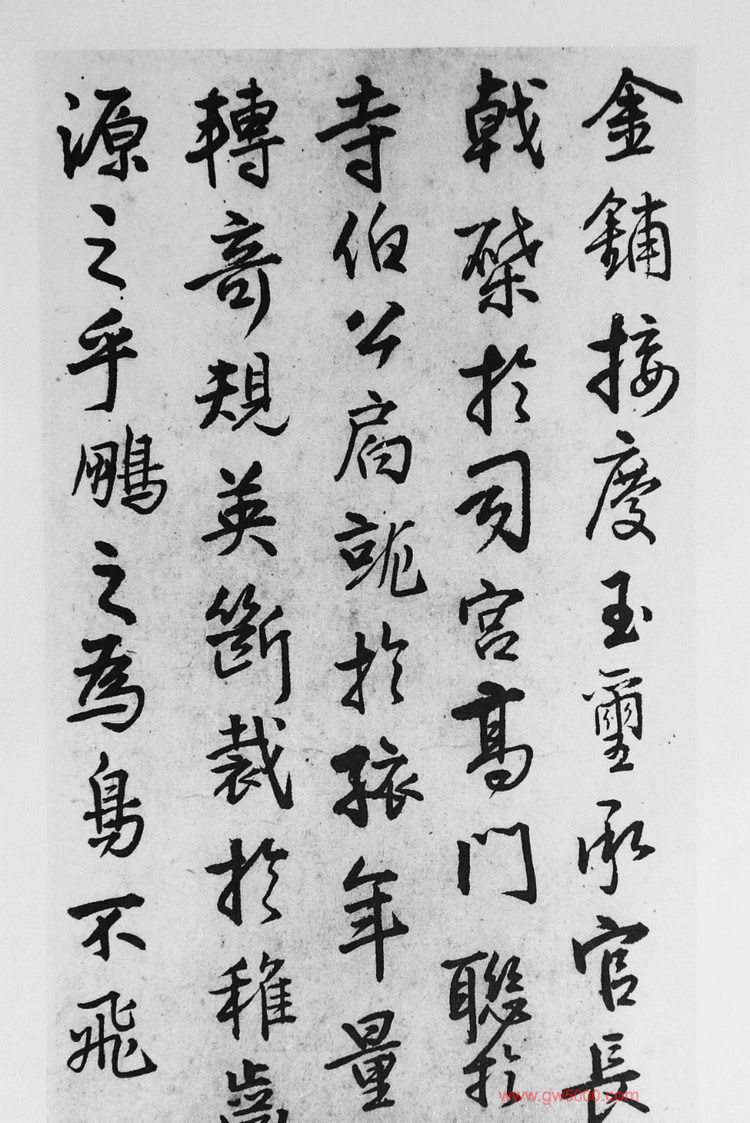 金鋪接慶玉璽承官長
戟棨於司宮高門聯於
寺伯公扃就於孩年量
轉奇規英斷裁於稚齒
源之乎鵬之為鳥不飛
www.gw5000.com